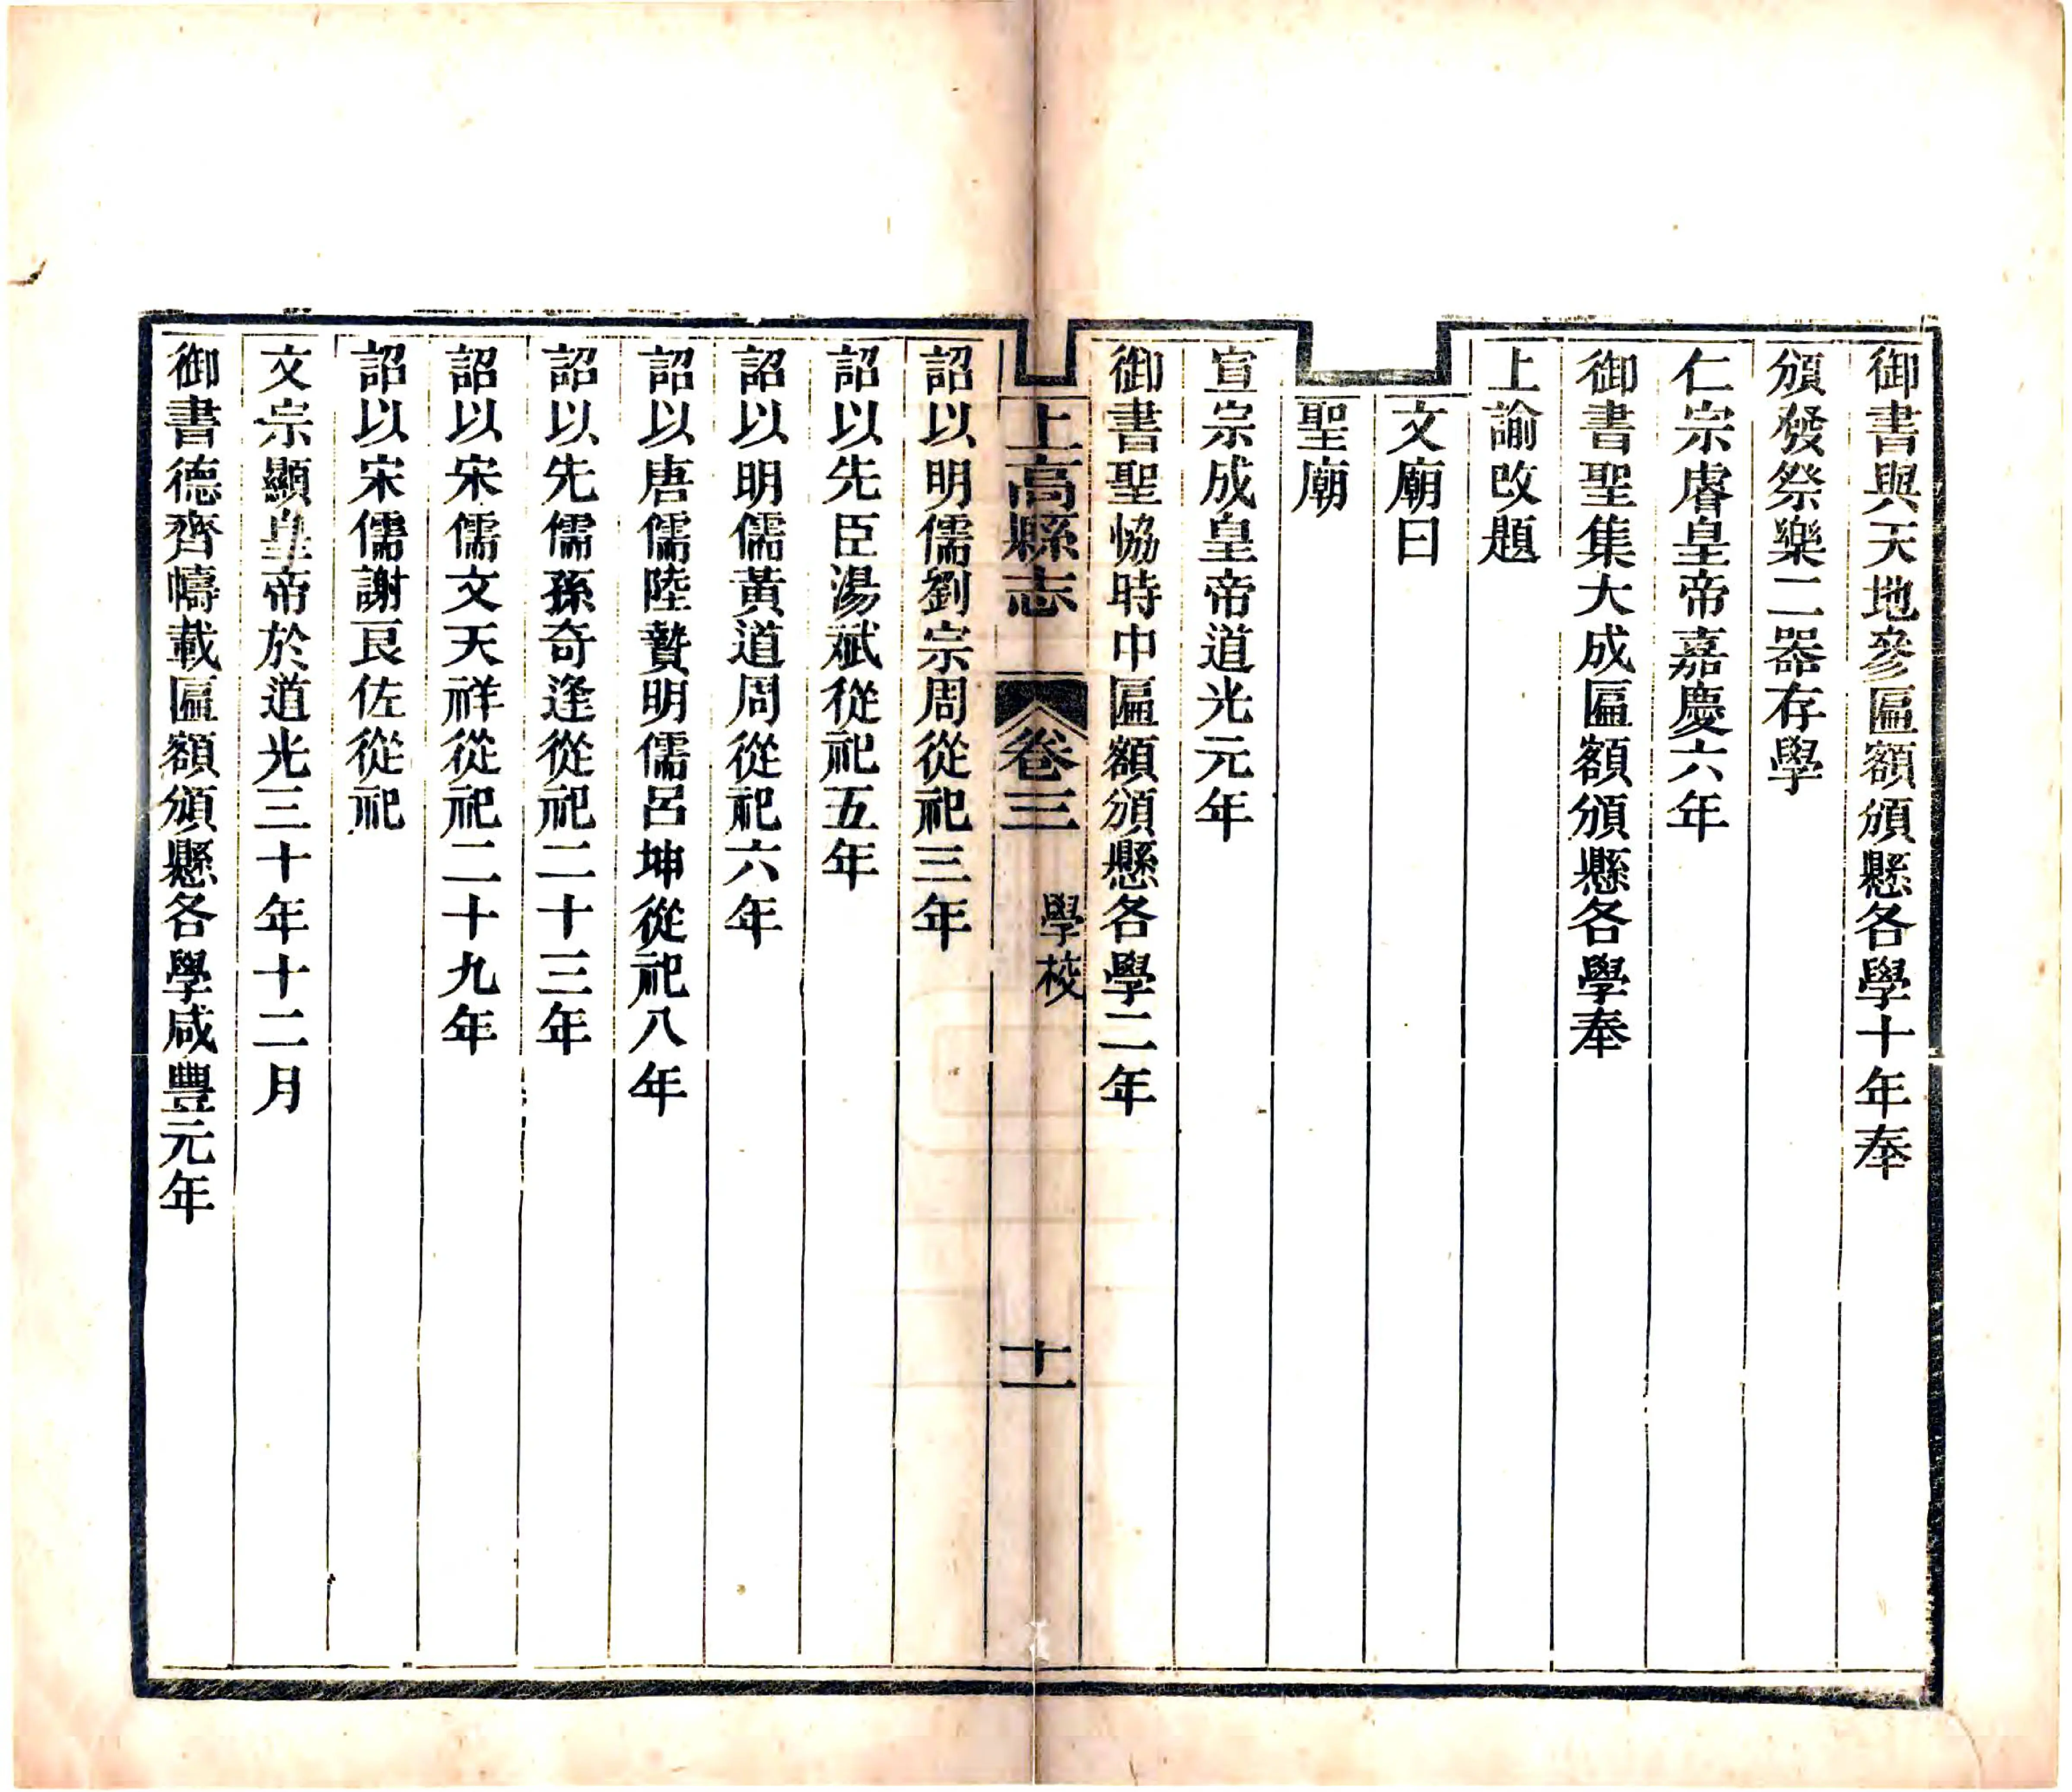 御書與天地參匾額頒懸各學十年奉
頒發祭樂二器存學
仁宗睿皇帝嘉慶六年
御書聖集大成匾額頒懸各學奉
上諭改題
文廟曰
聖廟
宣宗成皇帝道光元年
御書聖協時中匾額頒懸各學二年
上高縣志 卷三 學校 十一
詔以明儒劉宗周從祀三年
詔以先臣湯斌從祀五年
詔以明儒黃道周從祀六年
詔以唐儒陸贄明儒呂坤從祀八年
詔以先儒孫奇逢從祀二十三年
詔以宋儒文天祥從祀二十九年
詔以宋儒謝良佐從祀
文宗顯皇帝於道光三十年十二月
御書德齊幬載匾額頒懸各學咸豐元年